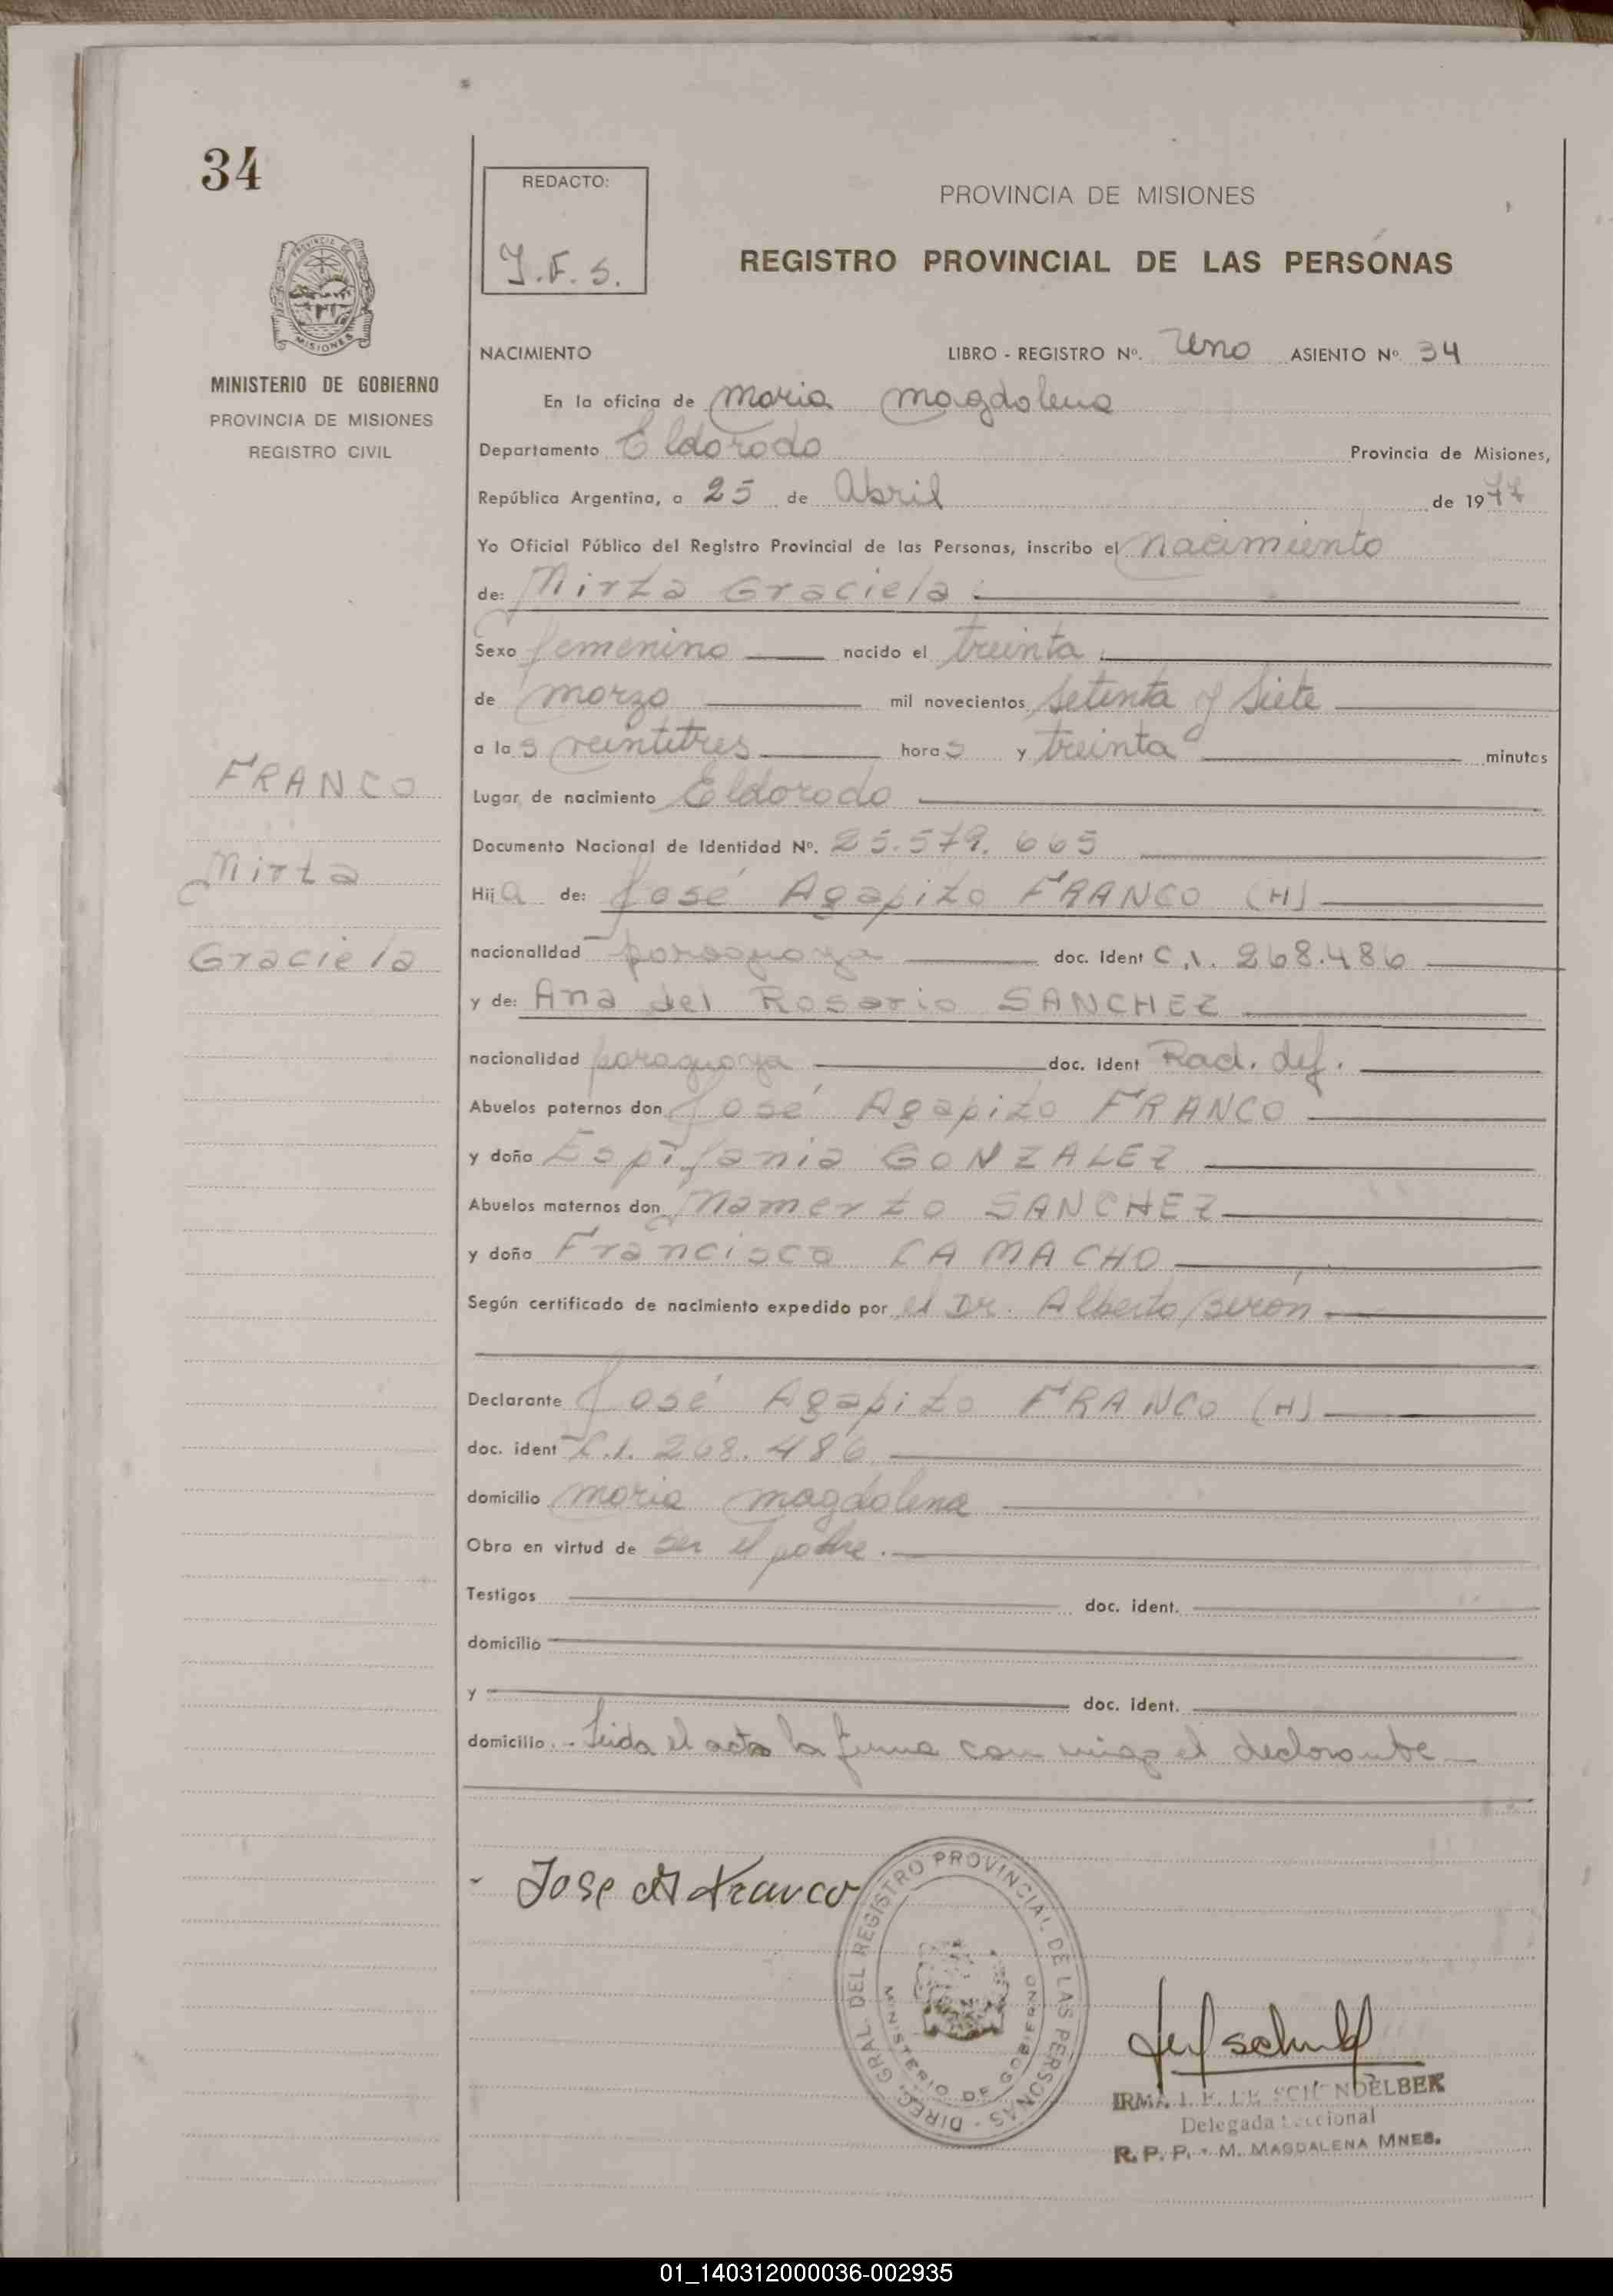 34
REDACTO:
Y.F.S.
PROVINCIA DE MISIONES
REGISTRO PROVINCIAL DE LAS PERSONAS
MINISTERIO DE GOBIERNO
PROVINCIA DE MISIONES
REGISTRO CIVIL
NACIMIENTO LIBRO - REGISTRO Nº. Uno ASIENTO Nº. 34
En la oficina de Maria Magdalena
Departamento Eldorado Provincia de Misiones,
República Argentina, a 25 de Abril de 1977
Yo Oficial Público del Registro Provincial de las Personas, inscribo el nacimiento
de: Mirta Graciela
Sexo femenino nacido el treinta
de marzo mil novecientos setenta y siete
a las veintitres horas y treinta minutos
Lugar de nacimiento Eldorado
Documento Nacional de Identidad Nº. 25.579.665
Hija de: José Agapito FRANCO (H)
nacionalidad paraguaya doc. ident C.I. 268.486
y de: Ana del Rosario SANCHEZ
nacionalidad paraguaya doc. ident Rad. def.
Abuelos paternos don José Agapito FRANCO
y doña Espifania GONZALEZ
Abuelos maternos don Namerto SANCHEZ
y doña Francisca CAMACHO
Según certificado de nacimiento expedido por el Dr. Alberto Seron
Declarante José Agapito FRANCO (H)
doc. ident C.I. 268.486
domicilio Maria Magdalena
Obra en virtud de ser el padre.
Testigos doc. ident.
domicilio
y doc. ident.
domicilio Leida el acta la firma con migo el declarante
FRANCO
Mirta
Graciela
Jose A Franco
DIREC. GRAL. DEL REGISTRO PROVINCIAL DE LAS PERSONAS
MINISTERIO DE GOBIERNO
MISIONES
IRMA
Delegada Seccional
R. P. P. - M. MAGDALENA MNES.
01_140312000036-002935